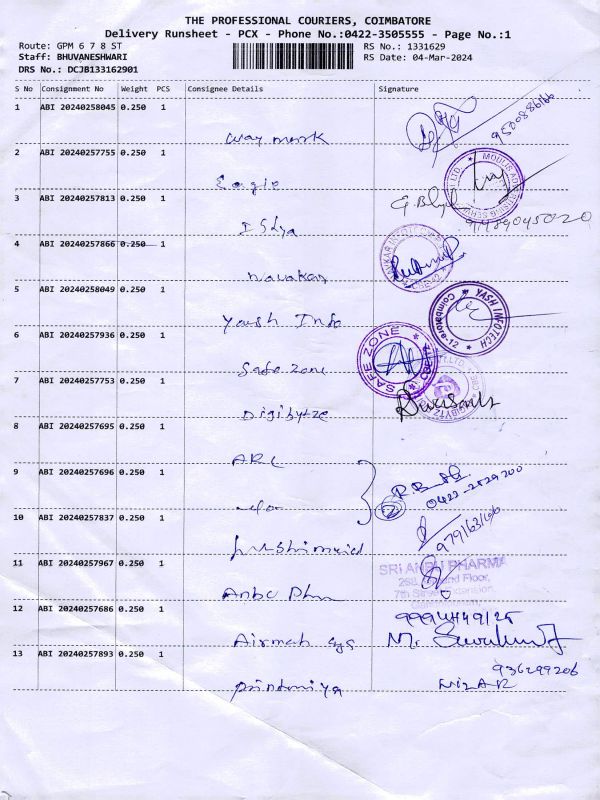 THE PROFESSIONAL COURIERS, COIMBATORE
Delivery Runsheet - PCX - Phone No.:0422-3505555 - Page No.:1
Route: GPM 6 7 8 ST
RS No.: 1331629
Staff: BHUVANESHWARI
RS Date: 04-Mar-2024
DRS No.: DCJB133162901
S No Consignment No Weight PCS Consignee Details Signature
1 ABI 20240258045 0.250 1
way mark
9500886166
2 ABI 20240257755 0.250 1
Eagle
3 ABI 20240257813 0.250 1
9489045020
4 ABI 20240257866 0.250 1
navakar
5 ABI 20240258049 0.250 1
Yash Info
YASH INFOTECH
Coimbatore-12
6 ABI 20240257936 0.250 1
Safe zone
SAFE ZONE
CBE-12
7 ABI 20240257753 0.250 1
Digibytze
8 ABI 20240257695 0.250 1
ARC
9 ABI 20240257696 0.250 1
0422-2529200
10 ABI 20240257837 0.250 1
11 ABI 20240257967 0.250 1
SRI ANBU PHARMA
Anbu Phm
12 ABI 20240257686 0.250 1
Airmah sys
13 ABI 20240257893 0.250 1
936299206
NIZAR